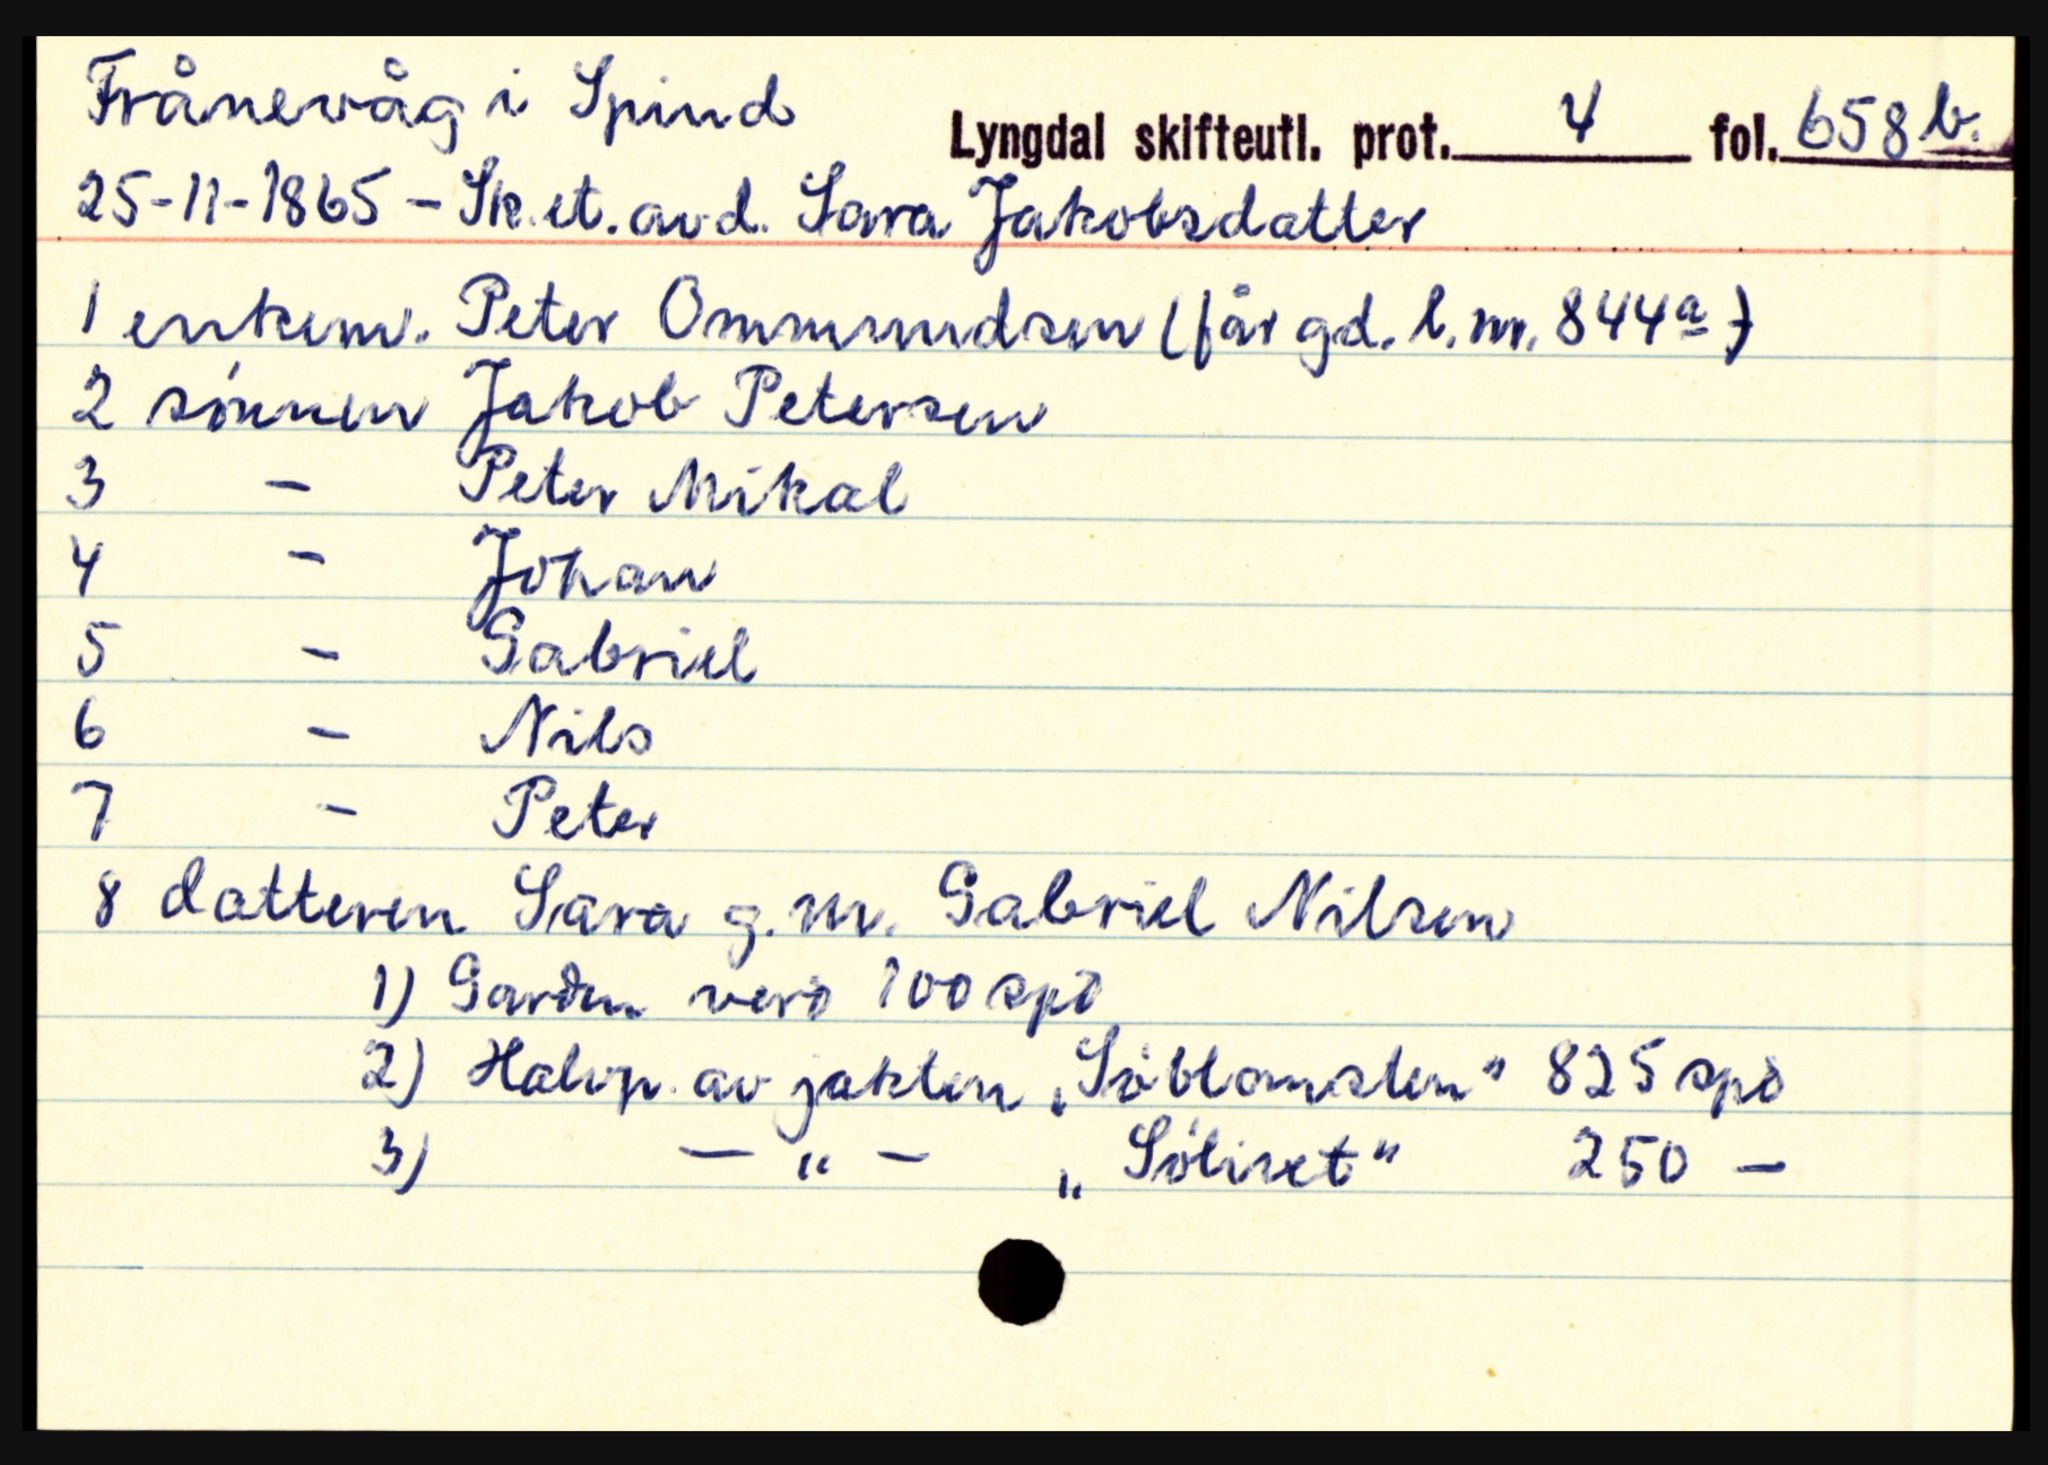 Frånevåg i Spind
Lyngdal skifteutl. prot. 4 fol. 658 b.
25-11-1865 - Sk. et. avd. Sara Jakobsdatter
1 enkem. Peter Ommundsen (får gd. l. nr. 844 a)
2 sønnen Jakob Petersen
3 - Peter Mikal
4 - Johan
5 - Gabriel
6 - Nils
7 - Peter
8 datteren Sara g. m. Gabriel Nilsen
1) Garden verd 100 spd
2) Halvp. av jakten „Søblomsten" 825 spd
3) — „ — „Søliret" 250 —